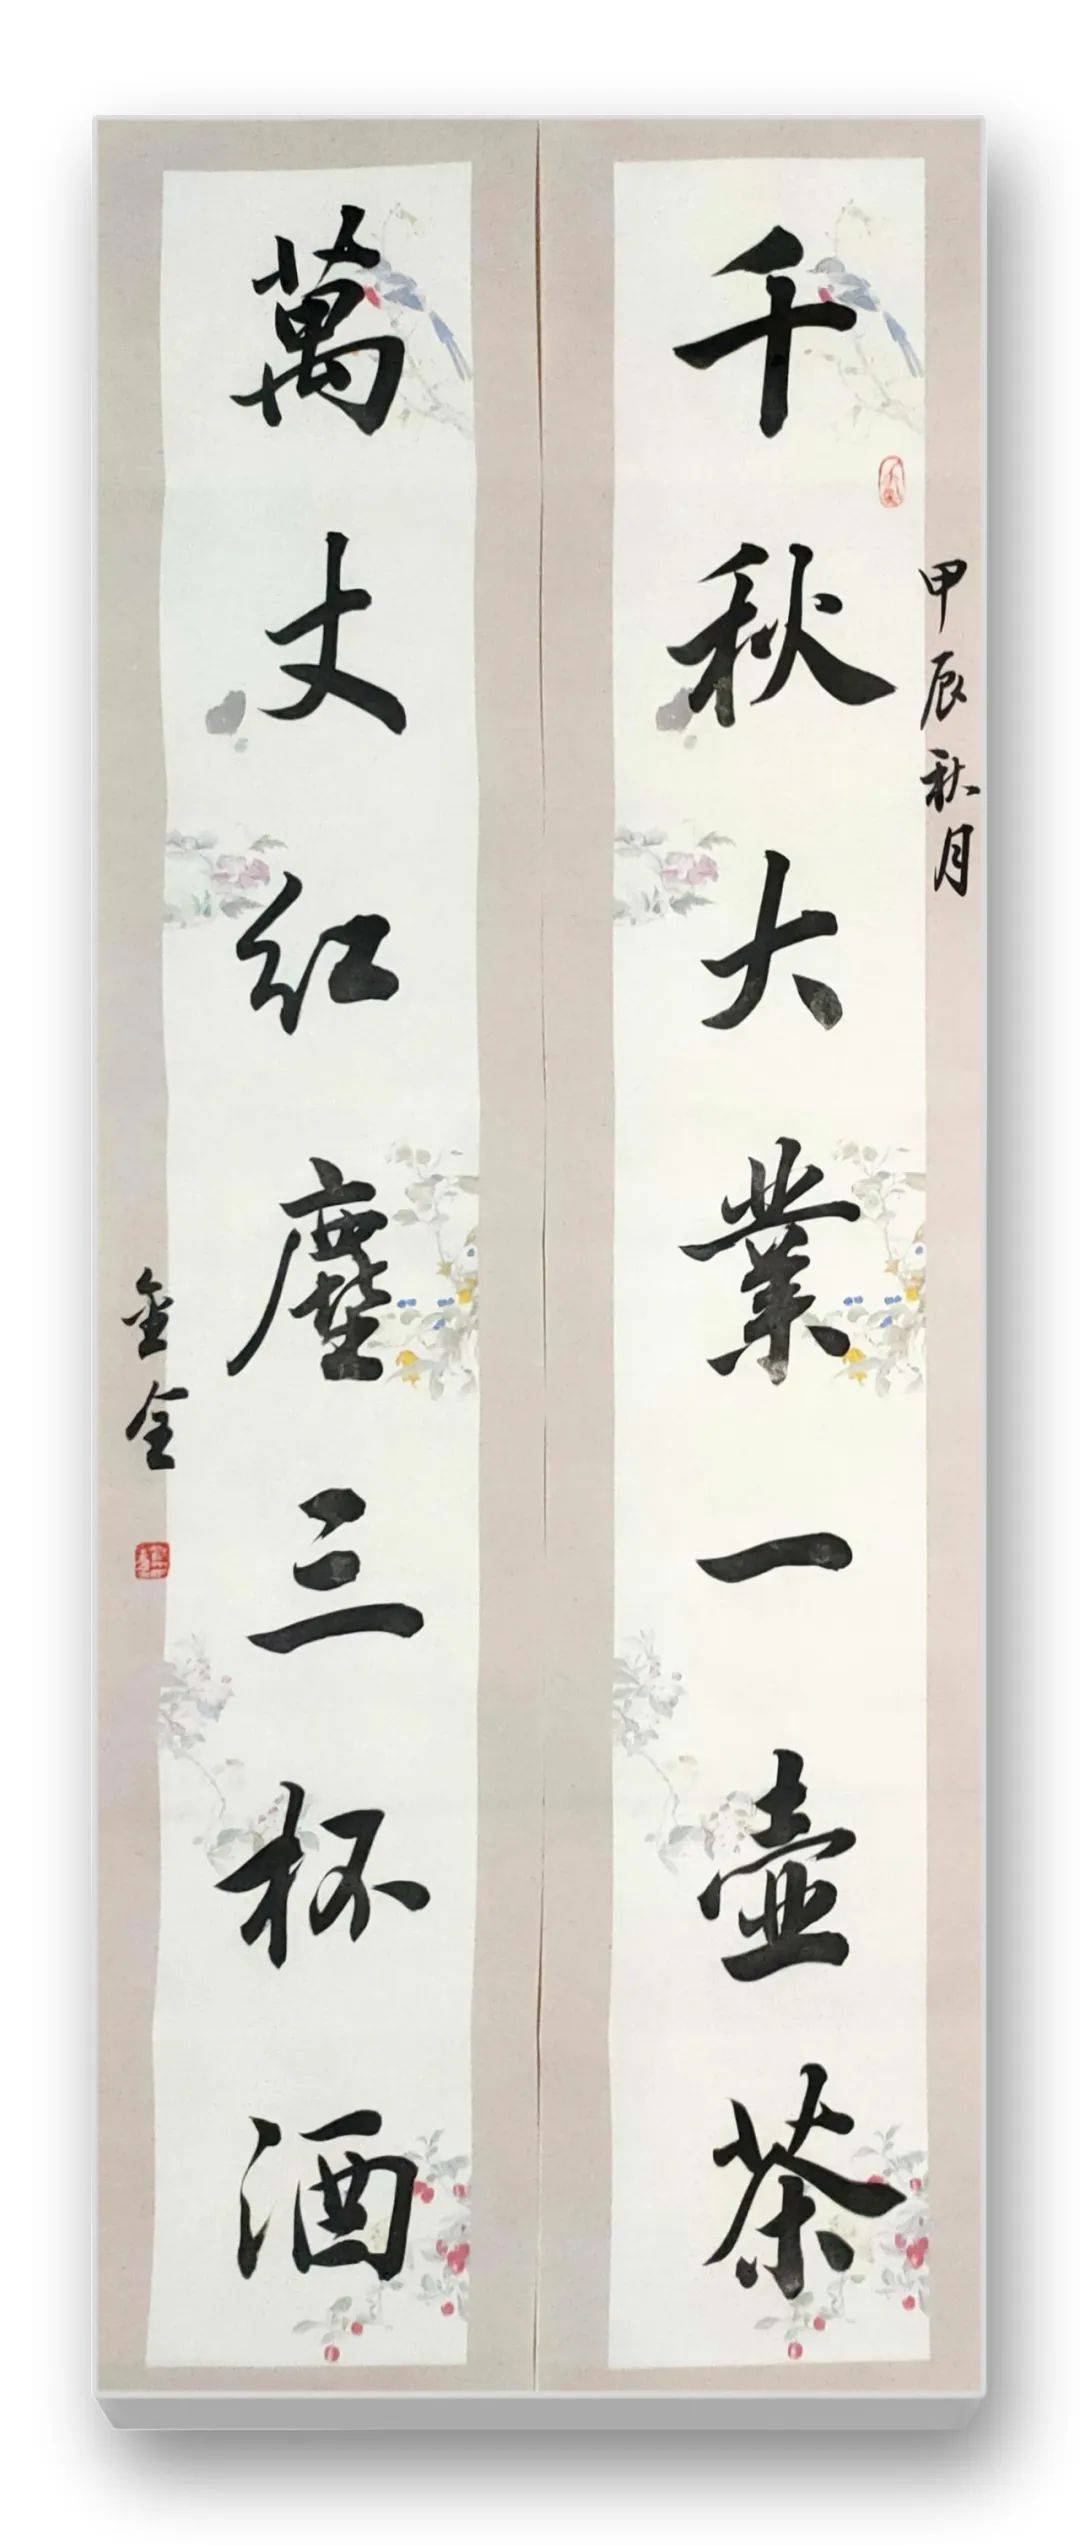 甲辰秋月
千秋大業一壺茶
萬丈红塵三杯酒
金全